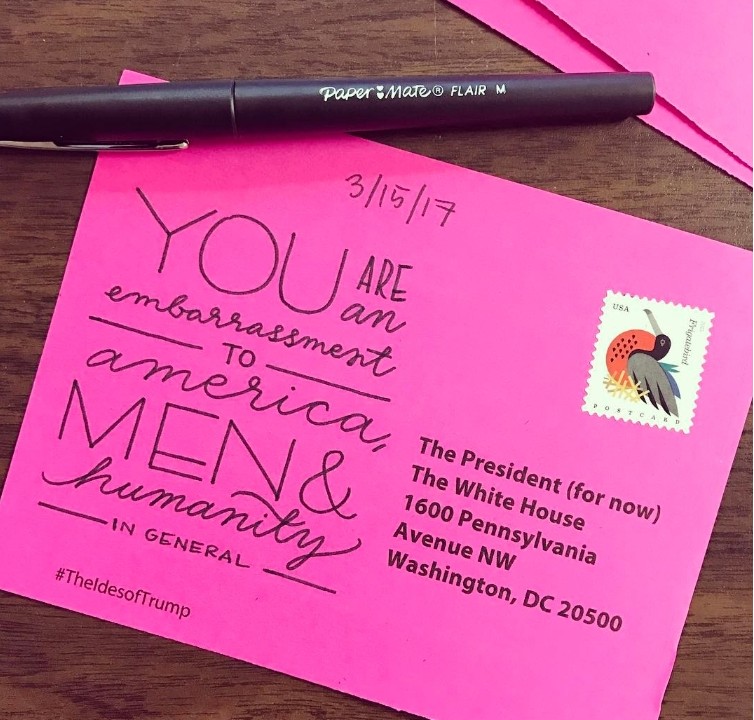 Paper Mate® FLAIR M
3/15/17
YOU ARE
an
embarrassment
TO
america,
MEN &
humanity
IN GENERAL
#TheIdesofTrump
USA
Frigatebird
POSTCARD
The President (for now)
The White House
1600 Pennsylvania
Avenue NW
Washington, DC 20500